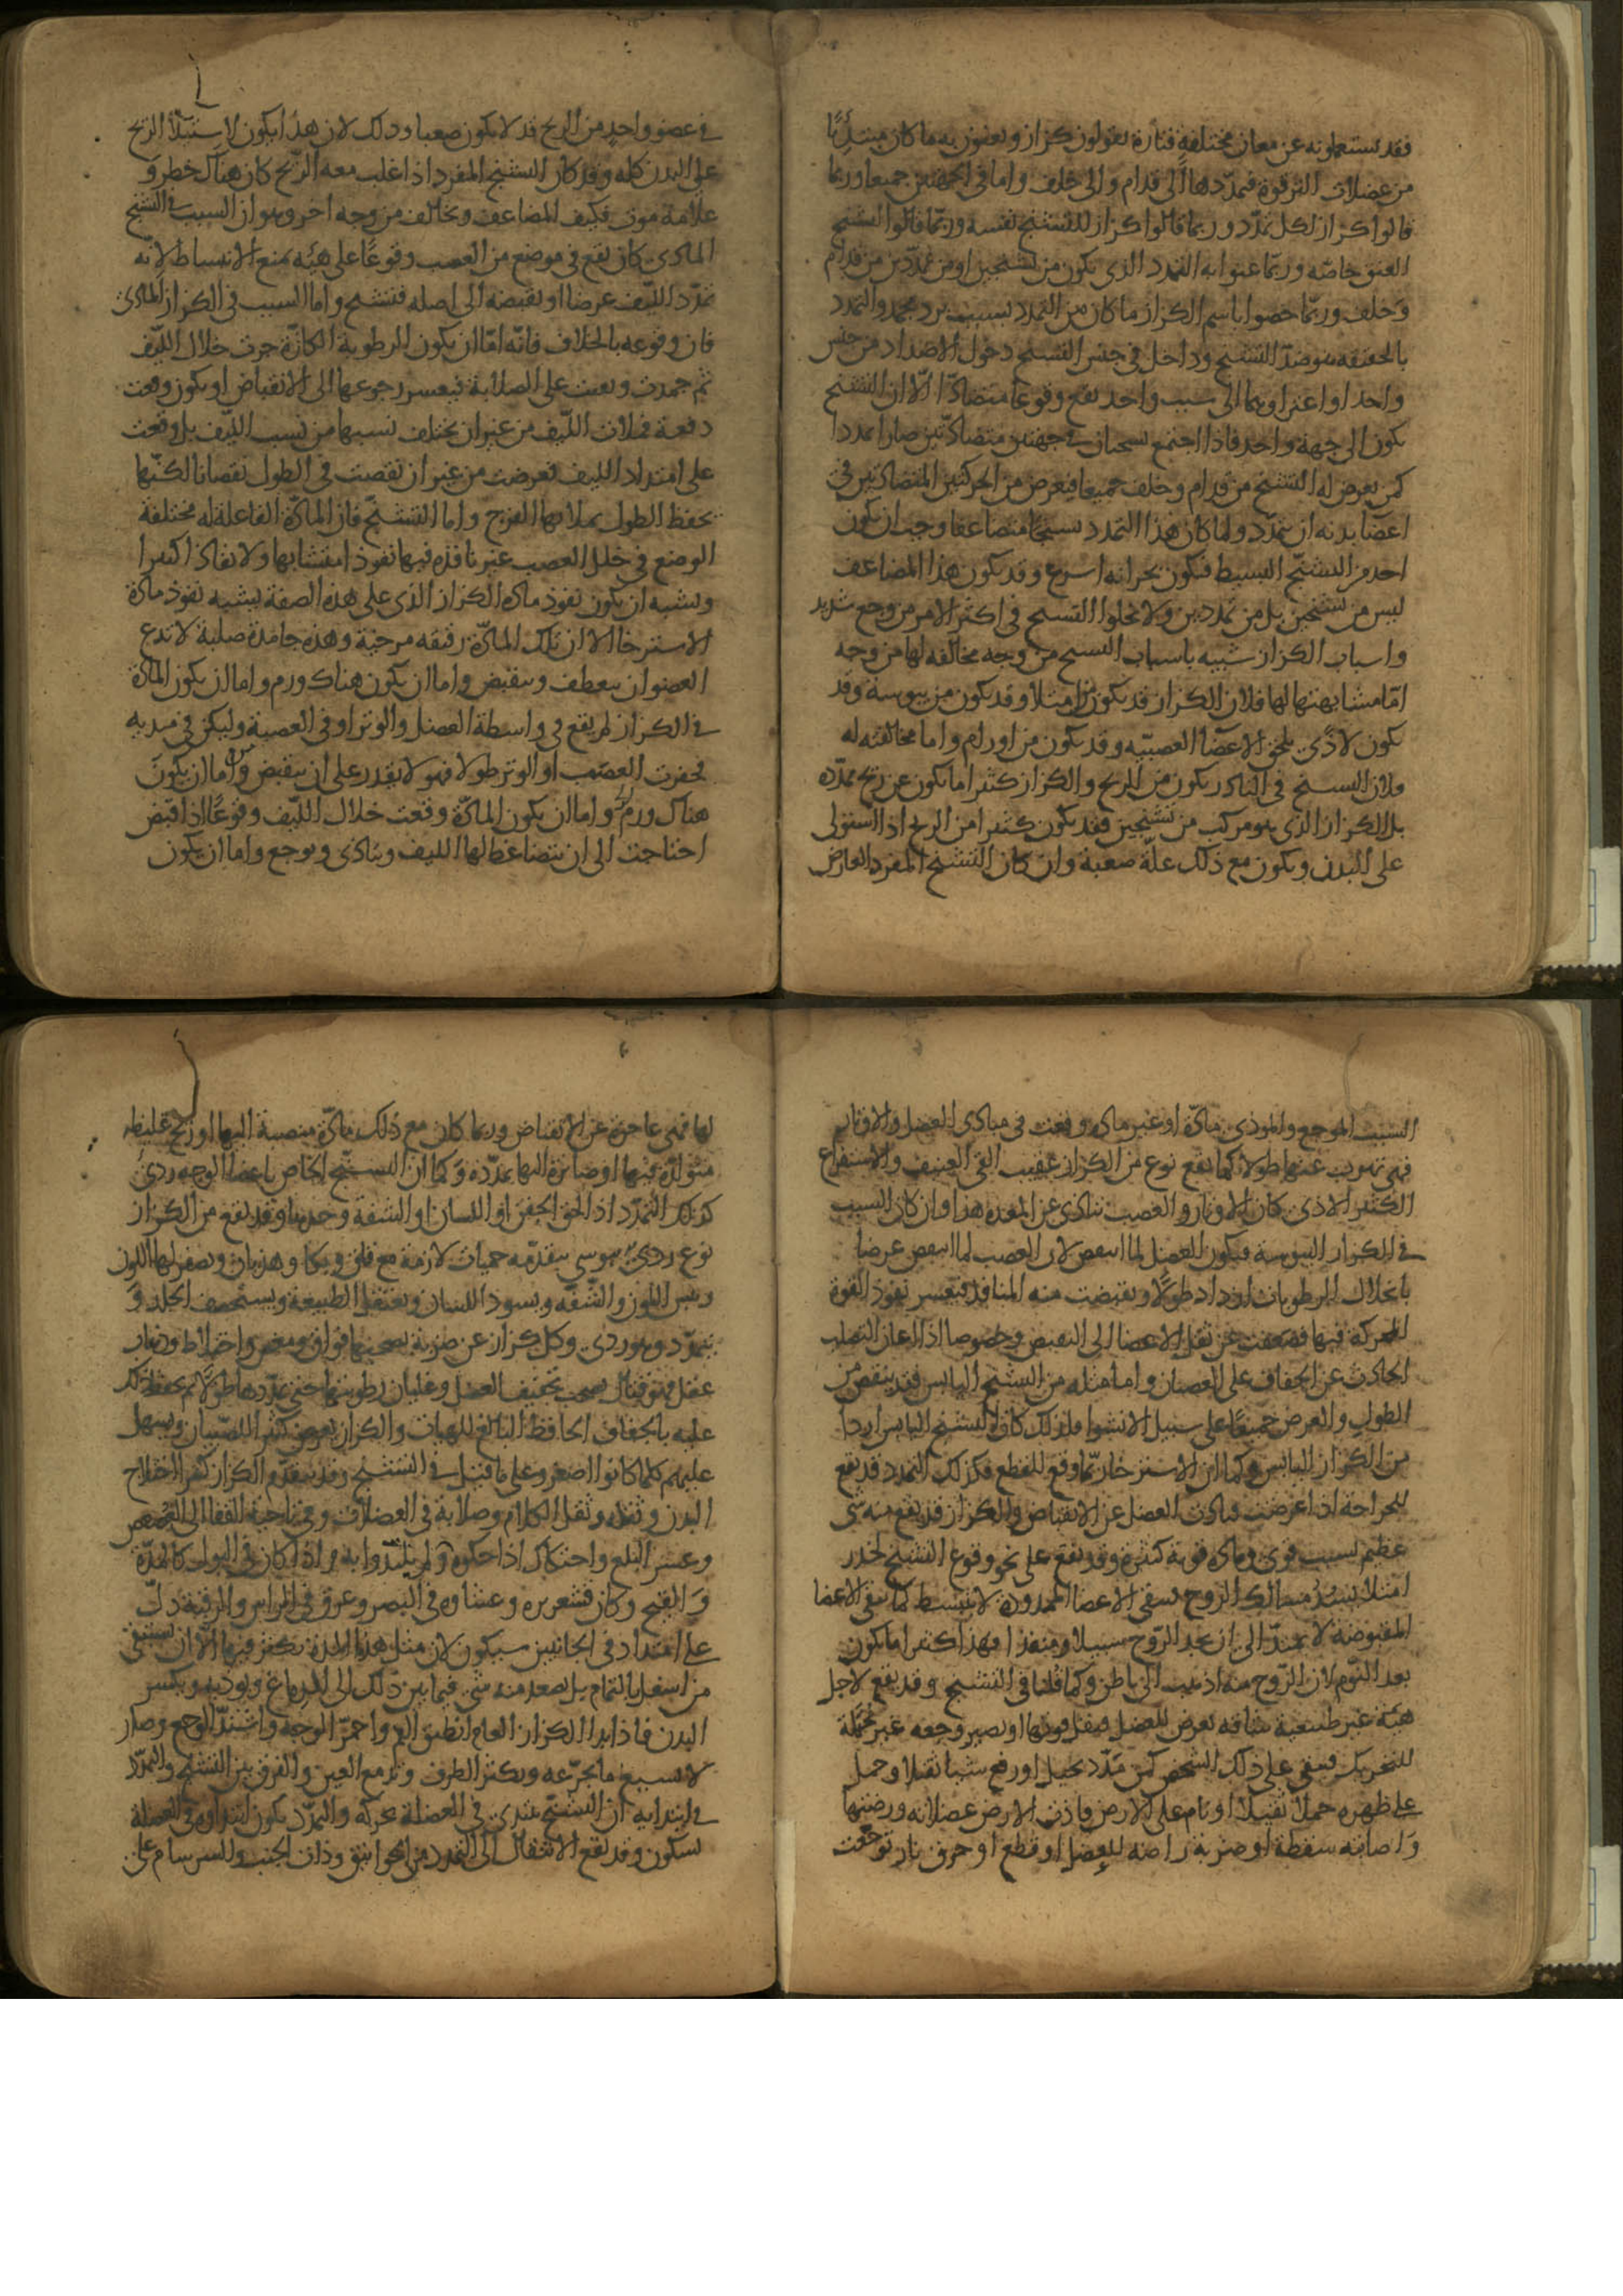 فقد يستعملونه عن معان مختلفة فتارة يقولون كزاز ويعنون به ما كان مبتدئا
من عضلات الترقوة فيمددها الى قدام والى خلف واما في الجهتين جميعا وربما
قالوا كزاز لكل تمدد وربما قالوا كزاز للتشنج نفسه وربما قالوا لتشنج
العنق خاصه وربما عنوا به التمدد الذي يكون من تشنجين او من تمددين من قدام
وخلف وربما خصوا باسم الكزاز ما كان من التمدد بسبب برد مجمد والتمدد
بالحقيقه هو ضد التشنج وداخل في جنس التشنج دخول الاضداد من جنس
واحد او اعتراوهما الى سبب واحد يقع وقوعا متضادا الا ان التشنج
يكون الى جهة واحد فاذا اجتمع تشنجان في جهتين متضادتين صارا تمددا
كمن يعرض له التشنج من قدام وخلف جميعا فيعرض من الحركتين المتضادتين في
اعضا بدنه ان يتمدد ولما كان هذا التمدد تشنجا متضاعفا وجب ان يكون
احد من التشنج البسيط فيكون بحرانه اسرع وقد يكون هذا المضاعف
ليس من تشنجين بل من تمددين ولا يخلوا التشنج في اكثر الامر من وجع شديد
واسباب الكزاز شبيه باسباب التشنج من وجه مخالفه لها من وجه
اما مشابهتها لها فلان الكزاز قد يكون من امتلا وقد يكون من يبوسة وقد
يكون لاذي يلحق الاعضا العصبيه وقد يكون من اورام واما مخالفته له
فلان التشنج في النادر يكون من الريح والكزاز كثيرا ما يكون عن ريح ممدده
بل الكزاز الذي هو مركب من تشنجين فقد يكون كثيرا من الريح اذا استولى
على البدن ويكون مع ذلك علة صعبة وان كان التشنج المفرد العارض
في عضو واحد من الريح قد لا يكون صعبا وذلك لان هذا يكون لاستيلا الريح
على البدن كله وقد كان التشنج المفرد اذا غلب معه الريح كان هناك خطر و
علامة موت فكيف المضاعف ويخالف من وجه اخر وهو ان السبب في التشنج
المادي كان يقع في موضع من العصب وقوعا على هيئه تمنع الانبساط لانه
تمدد الليف عرضا او تقبضه الى اصله فتشنج واما السبب في الكزاز المادي
فان وقوعه بالخلاف فانه اما ان يكون الرطوبة الكازة جرت خلال الليف
ثم جمدت وبقيت على الصلابة فيعسر رجوعها الى الانقباض او يكون وقعت
دفعة فملات الليف من غير ان يختلف نسبها من نسب الليف بل وقعت
على امتداد الليف فعرضت من غير ان نقصت في الطول نقصانا لكنها
تحفظ الطول بملا بها الفرج واما التشنج فان المادة الفاعلة له مختلفة
الوضع في خلل العصب غير نافذه فيها نفوذا متشابها ولا نفاذا كثيرا
ويشبه ان يكون نفوذ ماده الكزاز الذي على هذه الصفة يشبه نفوذ مادة
الاسترخا الا ان تلك المادة رقيقه مرخية وهذه جامدة صلبة لا تدع
العضو ان ينعطف وينقبض واما ان يكون هناك ورم واما ان يكون المادة
في الكزاز لم يقع في واسطة العضل والوتر او في العصبة وليكن في مبديه
فحفزت العصب او الوتر طولا فهو لا يقدر على ان ينقبض واما ان يكون
هناك ورم واما ان يكون المادة وقعت خلال الليف وقوعا اذا قبض
احتاجت الى ان يتضاغط لها الليف ويتاذى ويوجع واما ان يكون
السبب الموجع والموذي مادة او غير ماده وقعت في مبادي العضل والاوتار
فهي تهرب عنها طولا كما يقع نوع من الكزاز عقيب القي العنيف والاستفراغ
الكثير الاذي كان الاوتار والعصب تتاذى عن المعده هذا وان كان السبب
في الكزاز اليبوسة فيكون العضل لما انتقص لان العصب لما انتقص عرضا
بانحلال الرطوبات ازداد طولا وتقبضت منه المنافذ فيعسر نفوذ القوة
المحركة فيها فضعفت عن نقل الاعضا الى التقبض وخصوصا اذا اعان التصلب
الحادث عن الجفاف على العصيان واما مثله من التشنج اليابس فقد ينتقص من
الطول والعرض جميعا على سبيل الانشوا فلذلك كان التشنج اليابس اردا
من الكزاز اليابس وكما ان الاسترخا ربما وقع للقطع فكذلك التمدد قد يقع
للجراحة اذا عرضت فتاذت العضل عن الانقباض والكزاز قد يقع منه شي
عظيم بسبب قوي وماده قوية كثيرة وقد يقع على نحو وقوع التشنج لخدر
امتلا يسد مسالك الروح فيبقى الاعضا الممدودة لا تنبسط كما تبقى الاعضا
المقبوضة لا تمتد الى ان يجد الروح سبيلا ومنفذا فهذا اكثر ما يكون
بعد النوم لان الروح منه اذهب الى باطن وكما قلنا في التشنج وقد يقع لاجل
هيئة غير طبيعية شاقه تعرض للعضل فيقل قوتها او يصير وجعه غير محتملة
للتحريك فيبقى على ذلك الشخص كمن تمدد بحبل او رفع شيا ثقيلا وحمل
على ظهره حملا ثقيلا او نام على الارض فاذت الارض عضلاته ورضتها
واصابته سقطة او ضربة راضه للعضل او قطع او حرق نار توجعت
لها فهي عاجزة عن الانقباض وربما كان مع ذلك مادة منصبة اليها او ريح غليظه
متولدة فيها او صائرة اليها ممددة وكما ان التشنج الخاص باعضا الوجه ردي
كذلك التمدد اذا لحق الجفن او اللسان او الشفة وحدها وقد يقع من الكزاز
نوع ردي يبوسي يتقدمه حميات لازمة مع قلق وبكا وهذيان ويصفر لها اللون
ويبس اللون والشفه ويسود اللسان ويعتقل الطبيعة ويستحصف الجلد و
يتمدد وهو ردي وكل كزاز عن ضربة يصحبها فواق ومغص واختلاط وذهاب
عقل فهو قتال يصحب تجفيف العضل وغليان رطوبتها حتى تمددها طولا ثم يحفظ ذلك
عليه بالجفاف الحافظ البالغ للهيات والكزاز يعرض كثيرا للصبيان ويسهل
عليهم كلما كانوا اصغر وعلى ما قيل في التشنج وقد يتقدم الكزاز كثيرا اختلاج
البدن وثقله وثقل الكلام وصلابة في العضلات وفي ناحية القفا الى العصعص
وعسر البلع واحتكاك اذا حكوه لم يلتذوا به واذا كان في البول كالمدة
والقيح وكان قشعريره وغشاوه في البصر وعرق في الراس والرقبة دل
على امتداد في الجانبين سيكون لان مثل هذا المدة يكثر فيها الا ان يستنقى
من اسفل بالتمام بل يصعد منه شي فيما بين ذلك الى الدماغ ويوذيه ويكسر
البدن فاذا بدا الكزاز العام انطبق الفم واحمر الوجه واشتد الوجع وصار
لا يسيغ ما يجرعه ويكثر الطرف وتدمع العين والفرق بين التشنج والتمدد
في ابتدايه ان التشنج يبتدي في العضلة بحركه والتمدد يكون ابتداوه في العضلة
بسكون وقد يقع الانتقال الى التمدد من الخوانيق وذات الجنب والسرسام على